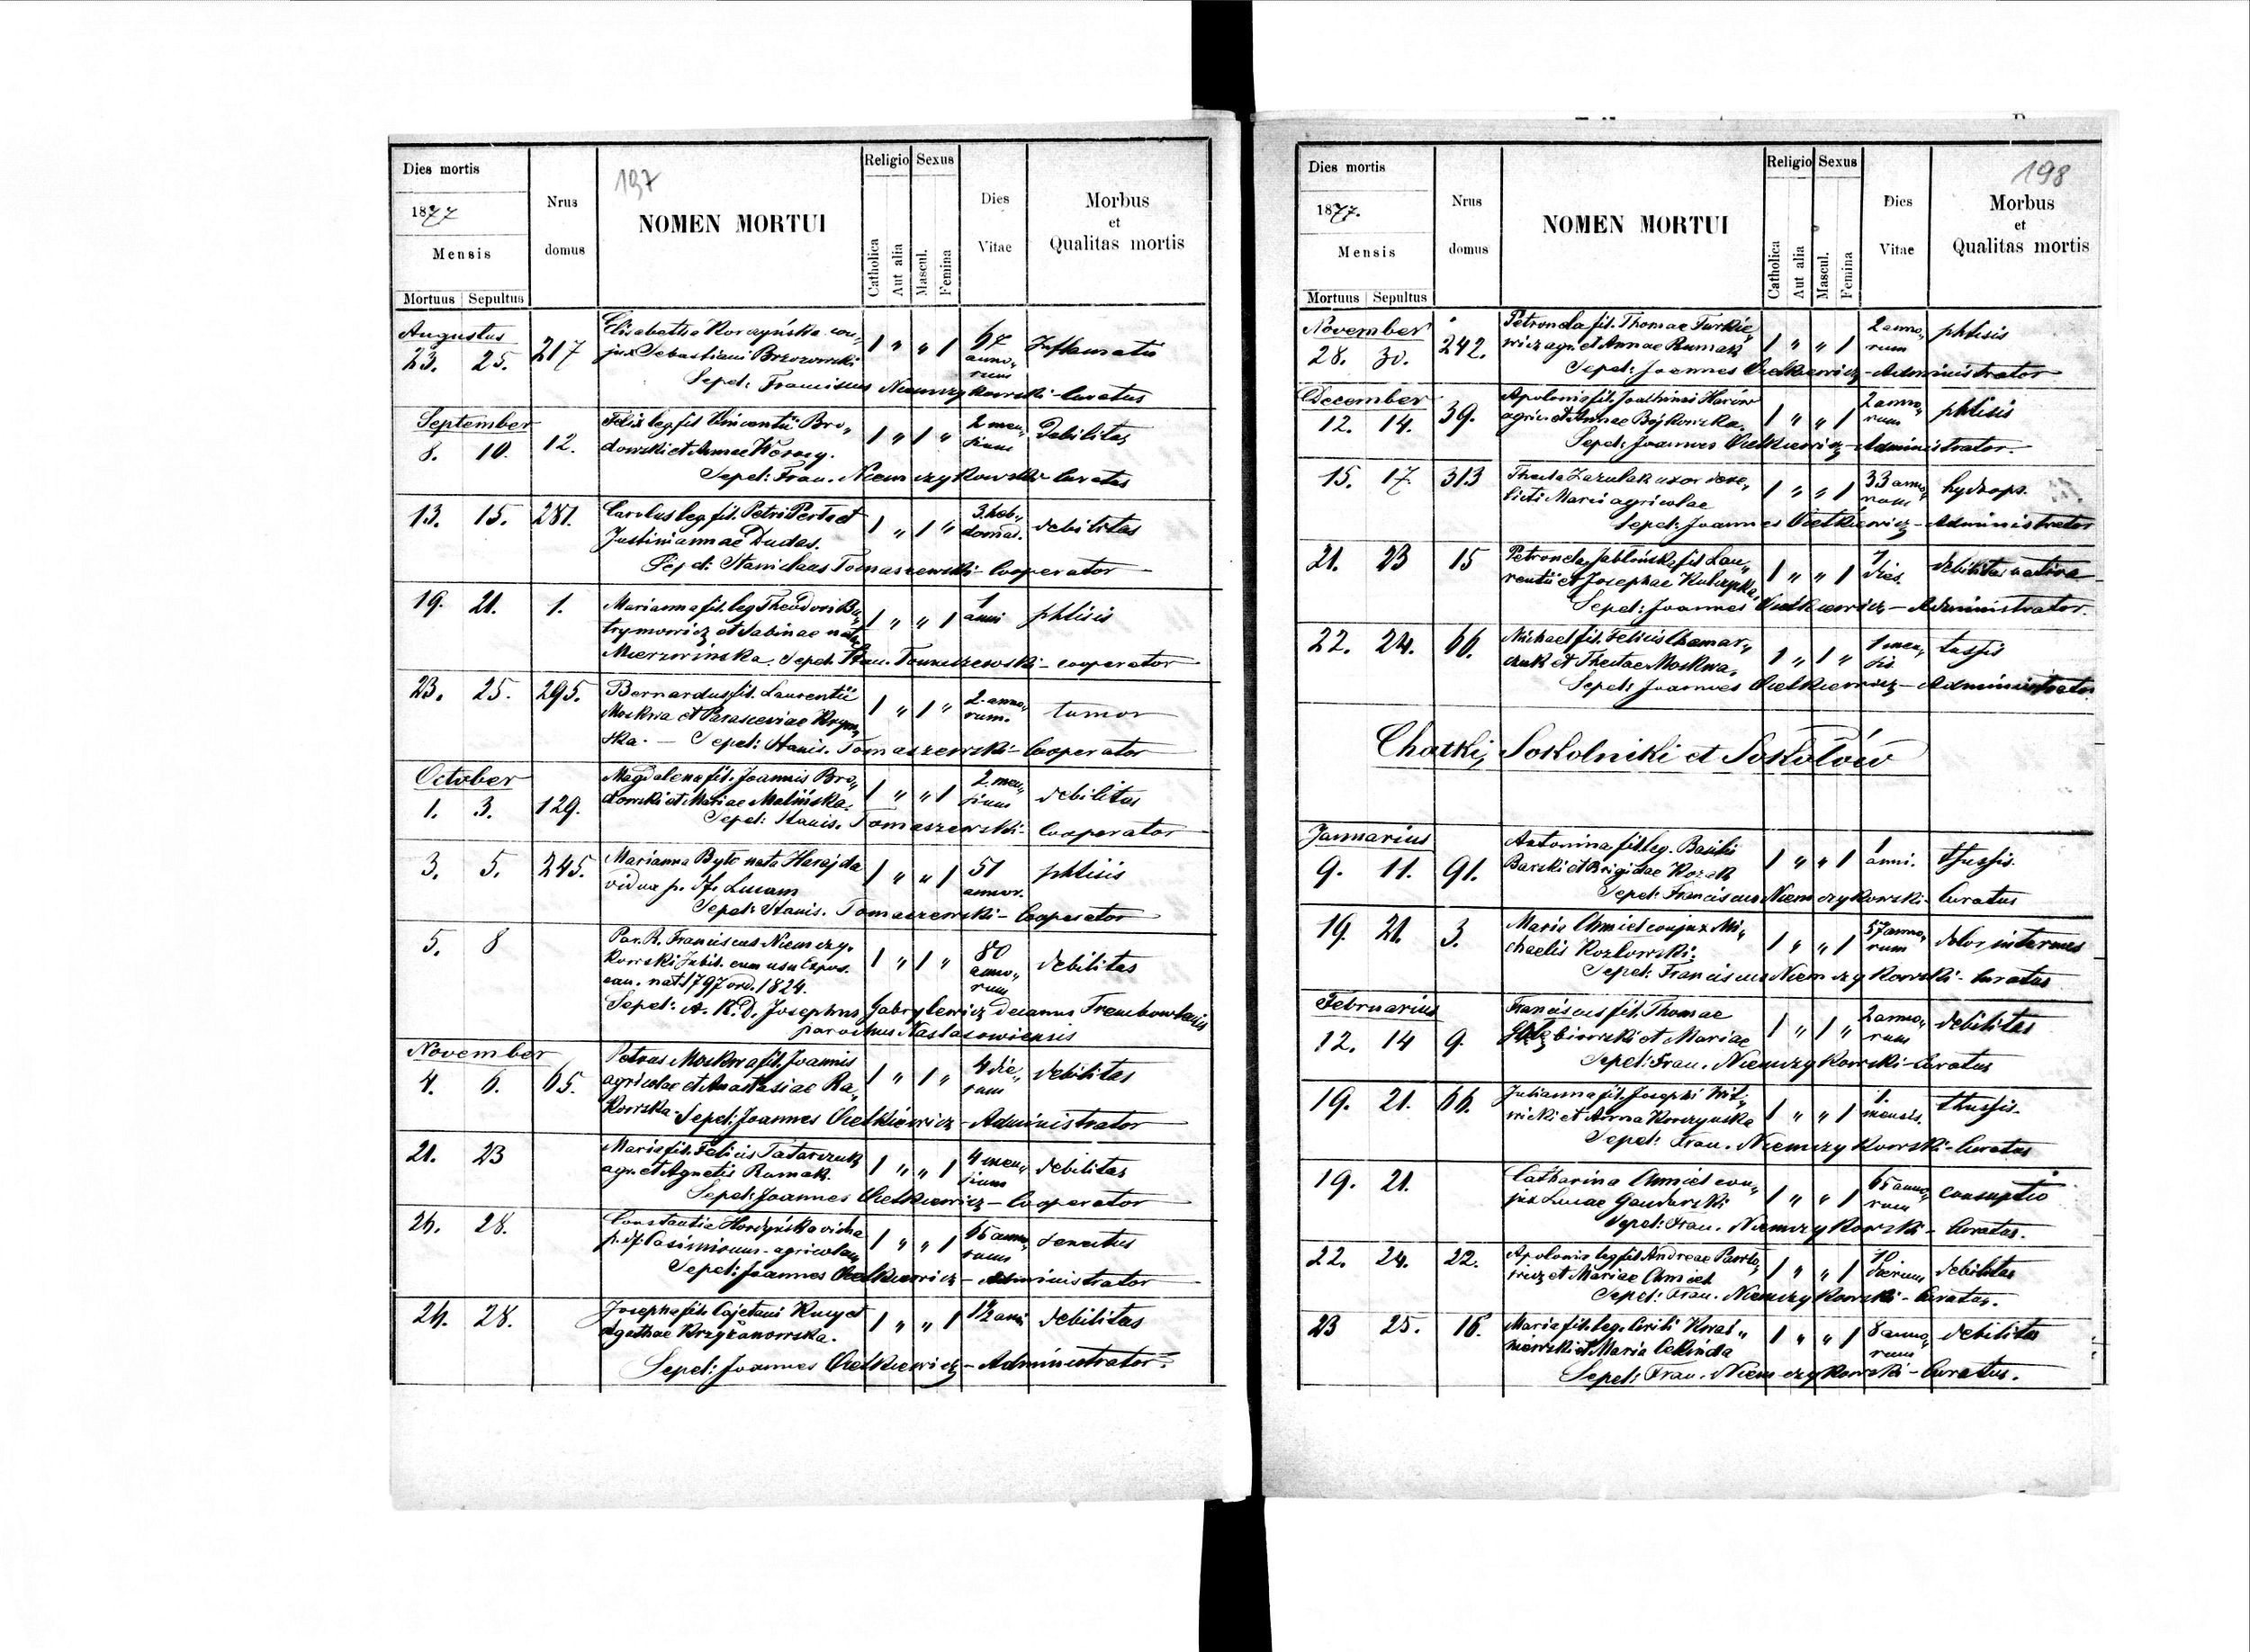 197
Dies mortis
1877
Mensis
Mortuus Sepultus
Nrus
domus
NOMEN MORTUI
Religio
Sexus
Catholica
Aut alia
Mascul.
Femina
Dies
Vitae
Morbus
et
Qualitas mortis
Augustus
23. 25. 217 Elisabetha Korczyńska con„
jux Sebastiani Brzozowski 1 „ „ 1 67 anno„
rum
Sepel: Franciscus Niemczykowski - Curatus
September
8. 10. 12. Felix leg. fil. Vincentii Bro„
dowski et Annae 1 „ 1 „ 2 men„
sium Debilitas
Sepel: Fran. Niemczykowski Curatus
13. 15. 281. Carolus leg. fil. Petri et
Justiniannae Dudas. 1 „ 1 „ 3. heb„
domad. debilitas
Sepel: Stanislaus Tomaszewski - Cooperator
19. 21. 1. Marianna fil. leg. Theodori Bu„
trymowicz et Sabinae nata 1 „ „ 1 1 anni phtisis
Mierzwińska. Sepel. Stan. Tomaszewski - cooperator
23. 25. 295. Bernardus fil. Laurentii
Moskwa et Parasceviae 1 „ 1 „ 2. anno„
rum. tumor
ska. — Sepel: Stanis. Tomaszewski - Cooperator
October
1. 3. 129. Magdalena fil. Joannis Bro„
dowski et Mariae Malińska. 1 „ „ 1 2. men„
sium debilitas
Sepel: Stanis. Tomaszewski - Cooperator
3. 5. 245. Marianna Byto nata Harajda
vidua p. df. Lucam 1 „ „ 1 51
annor. phtisis
Sepel: Stanis. Tomaszewski - Cooperator
5. 8 Par. R. Franciscus Niemczy„
kowski Jubil. cum usu Expos.
can. nat 1797 ord. 1824. 1 „ 1 „ 80
anno„
rum debilitas
Sepel: A. R. D. Josephus Gabrylewicz decanus Trembowlensis
parochus Nastasowiensis
November
4. 6. 65. Petrus Moskwa fil. Joannis
agricolae et Anastasiae Ra„
kowska. 1 „ 1 „ 4 die„
rum debilitas
Sepel: Joannes Cielkiewicz - Administrator
21. 23 Maria fil. Felicis Tatarczuk
agr. et Agnetis Rumak. 1 „ „ 1 4 men„
sium debilitas
Sepel: Joannes Cielkiewicz - Cooperator
26. 28. Constantia Hordyńska vidua
p. df. Casimirum - agricolam 1 „ „ 1 65 anno„
rum senectus
Sepel: Joannes Cielkiewicz - Administrator
26. 28. Josepha fil. Cajetani et
Agathae Krzyżanowska. 1 „ „ 1 1½ anni debilitas
Sepel: Joannes Cielkiewicz - Administrator.
198
Dies mortis
1877.
Mensis
Mortuus Sepultus
Nrus
domus
NOMEN MORTUI
Religio
Sexus
Catholica
Aut alia
Mascul.
Femina
Dies
Vitae
Morbus
et
Qualitas mortis
November
28. 30. 242. Petronela fil. Thomae Turkie„
wicz agr. et Annae Rumak 1 „ „ 1 2 anno„
rum phtisis
Sepel: Joannes Cielkiewicz - Administrator
December
12. 14. 39. Apolonia fil. Joachimi
agric. et Annae Bojkowska. 1 „ „ 1 2 anno„
rum phtisis
Sepel: Joannes Cielkiewicz - Administrator.
15. 17. 313 Thecla Zazulak uxor dere„
licti Marci agricolae 1 „ „ 1 33 anno„
rum hydrops.
Sepel: Joannes Cielkiewicz - Administrator
21. 23 15 Petronela Jabłońska fil. Lau„
rentii et Josephae 1 „ „ 1 7
dies. debilitas nativa
Sepel: Joannes Cielkiewicz - Administrator.
22. 24. 66. Michael fil. Felicis Chamar„
czuk et Theclae Moskwa. 1 „ 1 „ 1 men„
sis tussis
Sepel: Joannes Cielkiewicz - Administrator.
Chatki, Sokolniki et Sokołów
Januarius
9. 11. 91. Antonina fil. leg. Basilii
Barski et Brigidae Kozak 1 „ „ 1 1
anni. thussis.
Sepel: Franciscus Niemczykowski - Curatus
19. 21. 3. Maria Chmiel conjux Mi„
chaelis Kozłowski. 1 „ „ 1 57 anno„
rum dolor internus
Sepel: Franciscus Niemczykowski - Curatus
Februarius
12. 14 9. Franciscus fil. Thomae
et Mariae 1 „ 1 „ 2 anno„
rum debilitas
Sepel: Fran. Niemczykowski - Curatus
19. 21. 66. Julianna fil. Josephi Wit„
wicki et Anna Korczynska 1 „ „ 1 1.
mensis. thussis.
Sepel: Fran. Niemczykowski - Curatus
19. 21. Catharina Chmiel con„
jux Lucae Gandurski 1 „ „ 1 65 anno„
rum consuptio
Sepel: Fran. Niemczykowski - Curatus.
22. 24. 22. Apolonia leg. fil. Andreae Pawlo„
wicz et Mariae Chmiel 1 „ „ 1 10
dierum debilitas
Sepel: Fran. Niemczykowski - Curatus.
23 25. 16. Maria fil. leg. Cirili Kowal„
niewski et Maria 1 „ „ 1 8 anno„
rum debilitas
Sepel: Fran. Niemczykowski - Curatus.